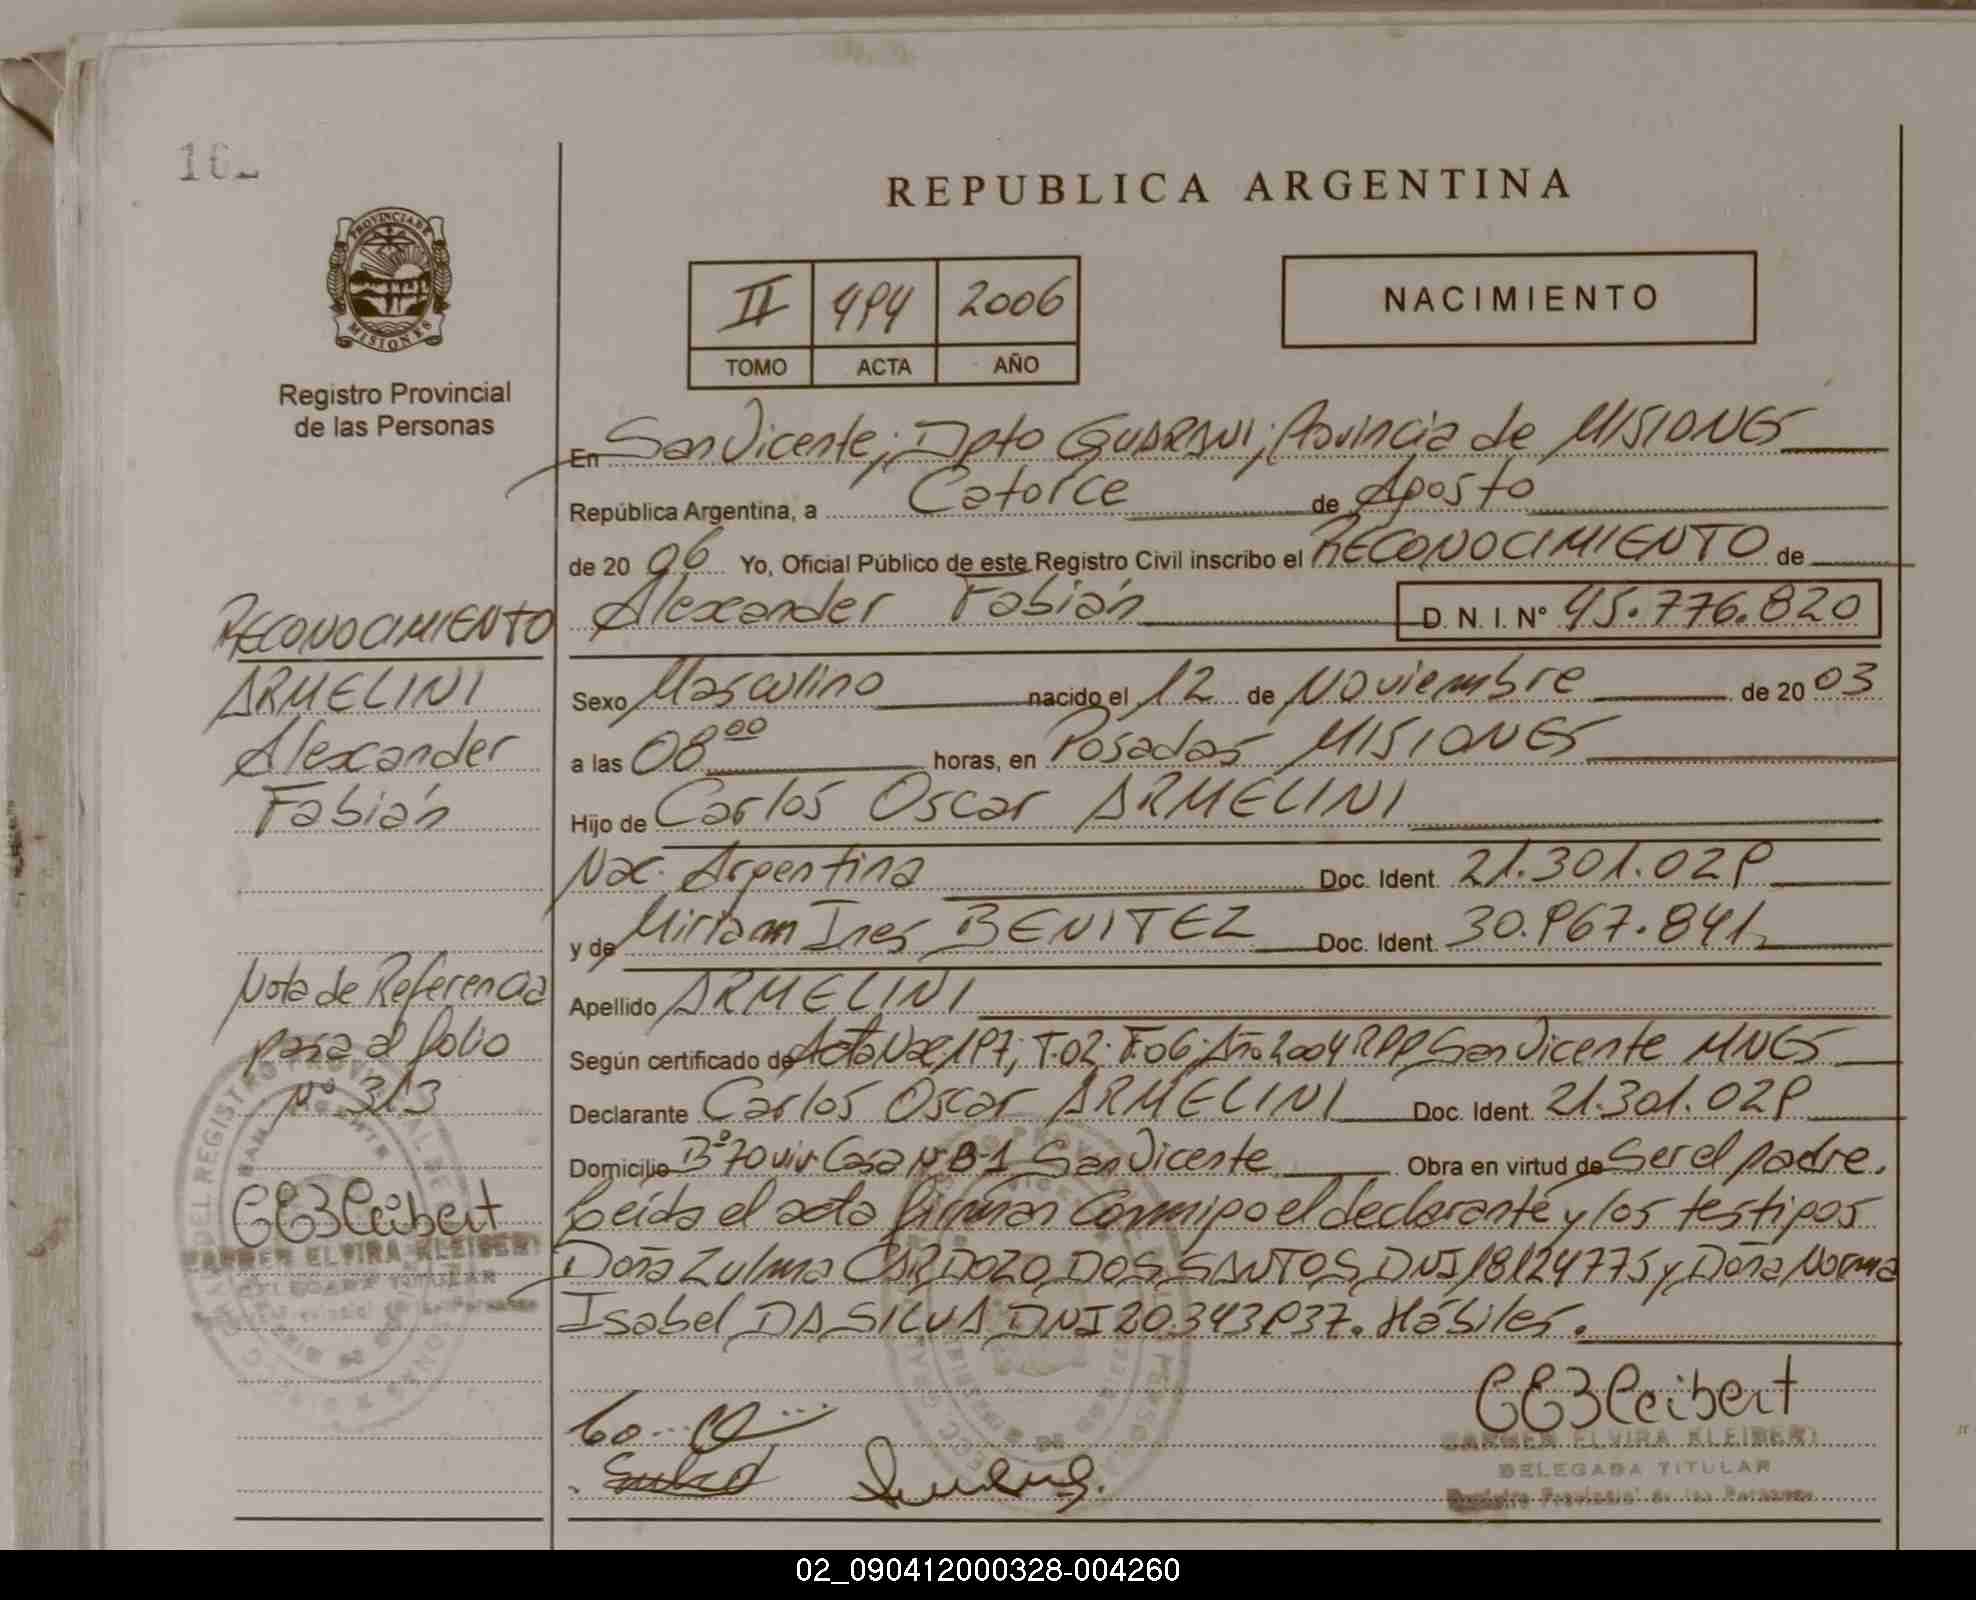 REPUBLICA ARGENTINA
PROVINCIA DE
MISIONES
Registro Provincial
de las Personas
II 494 2006
TOMO ACTA AÑO
NACIMIENTO
En San Vicente; Dpto GUARANI; Provincia de MISIONES
República Argentina, a Catorce de Agosto
de 20 06 Yo, Oficial Público de este Registro Civil inscribo el RECONOCIMIENTO de
Alexander Fabián D. N. I. N° 45.776.820
Sexo Masculino nacido el 12 de Noviembre de 20 03
a las 08 00 horas, en Posadas MISIONES
Hijo de Carlos Oscar ARMELINI
Nac. Argentina Doc. Ident. 21.301.029
y de Miriam Ines BENITEZ Doc. Ident. 30.967.841
Apellido ARMELINI
Según certificado de Acta Nac 197; T.02; F.06; Año 2004 RPP San Vicente MNES
Declarante Carlos Oscar ARMELINI Doc. Ident. 21.301.029
Domicilio B° 70 viv. Casa N° B-1 San Vicente Obra en virtud de Ser el padre.
Leída el acta firman Conmigo el declarante y los testigos
Doña Zulma CARDOZO DOS SANTOS DNI 18124775 y Doña Norma
Isabel DA SILVA DNI 20.343.937. Hábiles.
RECONOCIMIENTO
ARMELINI
Alexander
Fabián
Nota de Referencia
para al folio
N° 313
CARMEN ELVIRA KLEIBERT
DELEGADA TITULAR
CARMEN ELVIRA KLEIBERT
DELEGADA TITULAR
Registro Provincial de las Personas
02_090412000328-004260